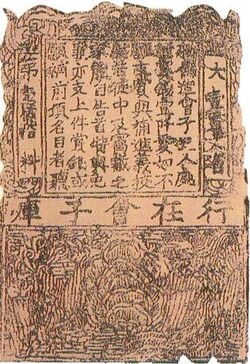 大壹貫文省
敕偽造會子犯人處
斬賞錢壹阡貫如不
願支賞與補進義校
尉若徒中及窩藏之
家能自告首特與免
罪亦支上件賞錢或
願補前項名目者聽
第拾料
行在會子庫